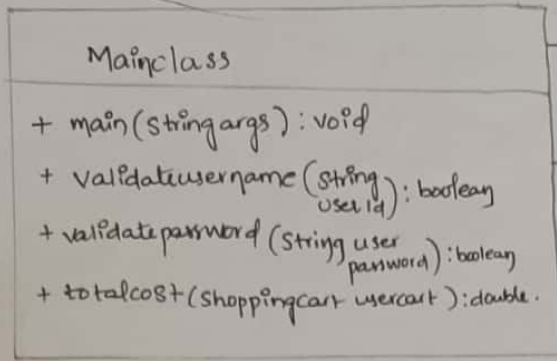 Mainclass
+ main(string args): void
+ validateusername(string
userid): boolean
+ validatepassword (string user
password): boolean
+ totalcost(shoppingcart usercart): double.